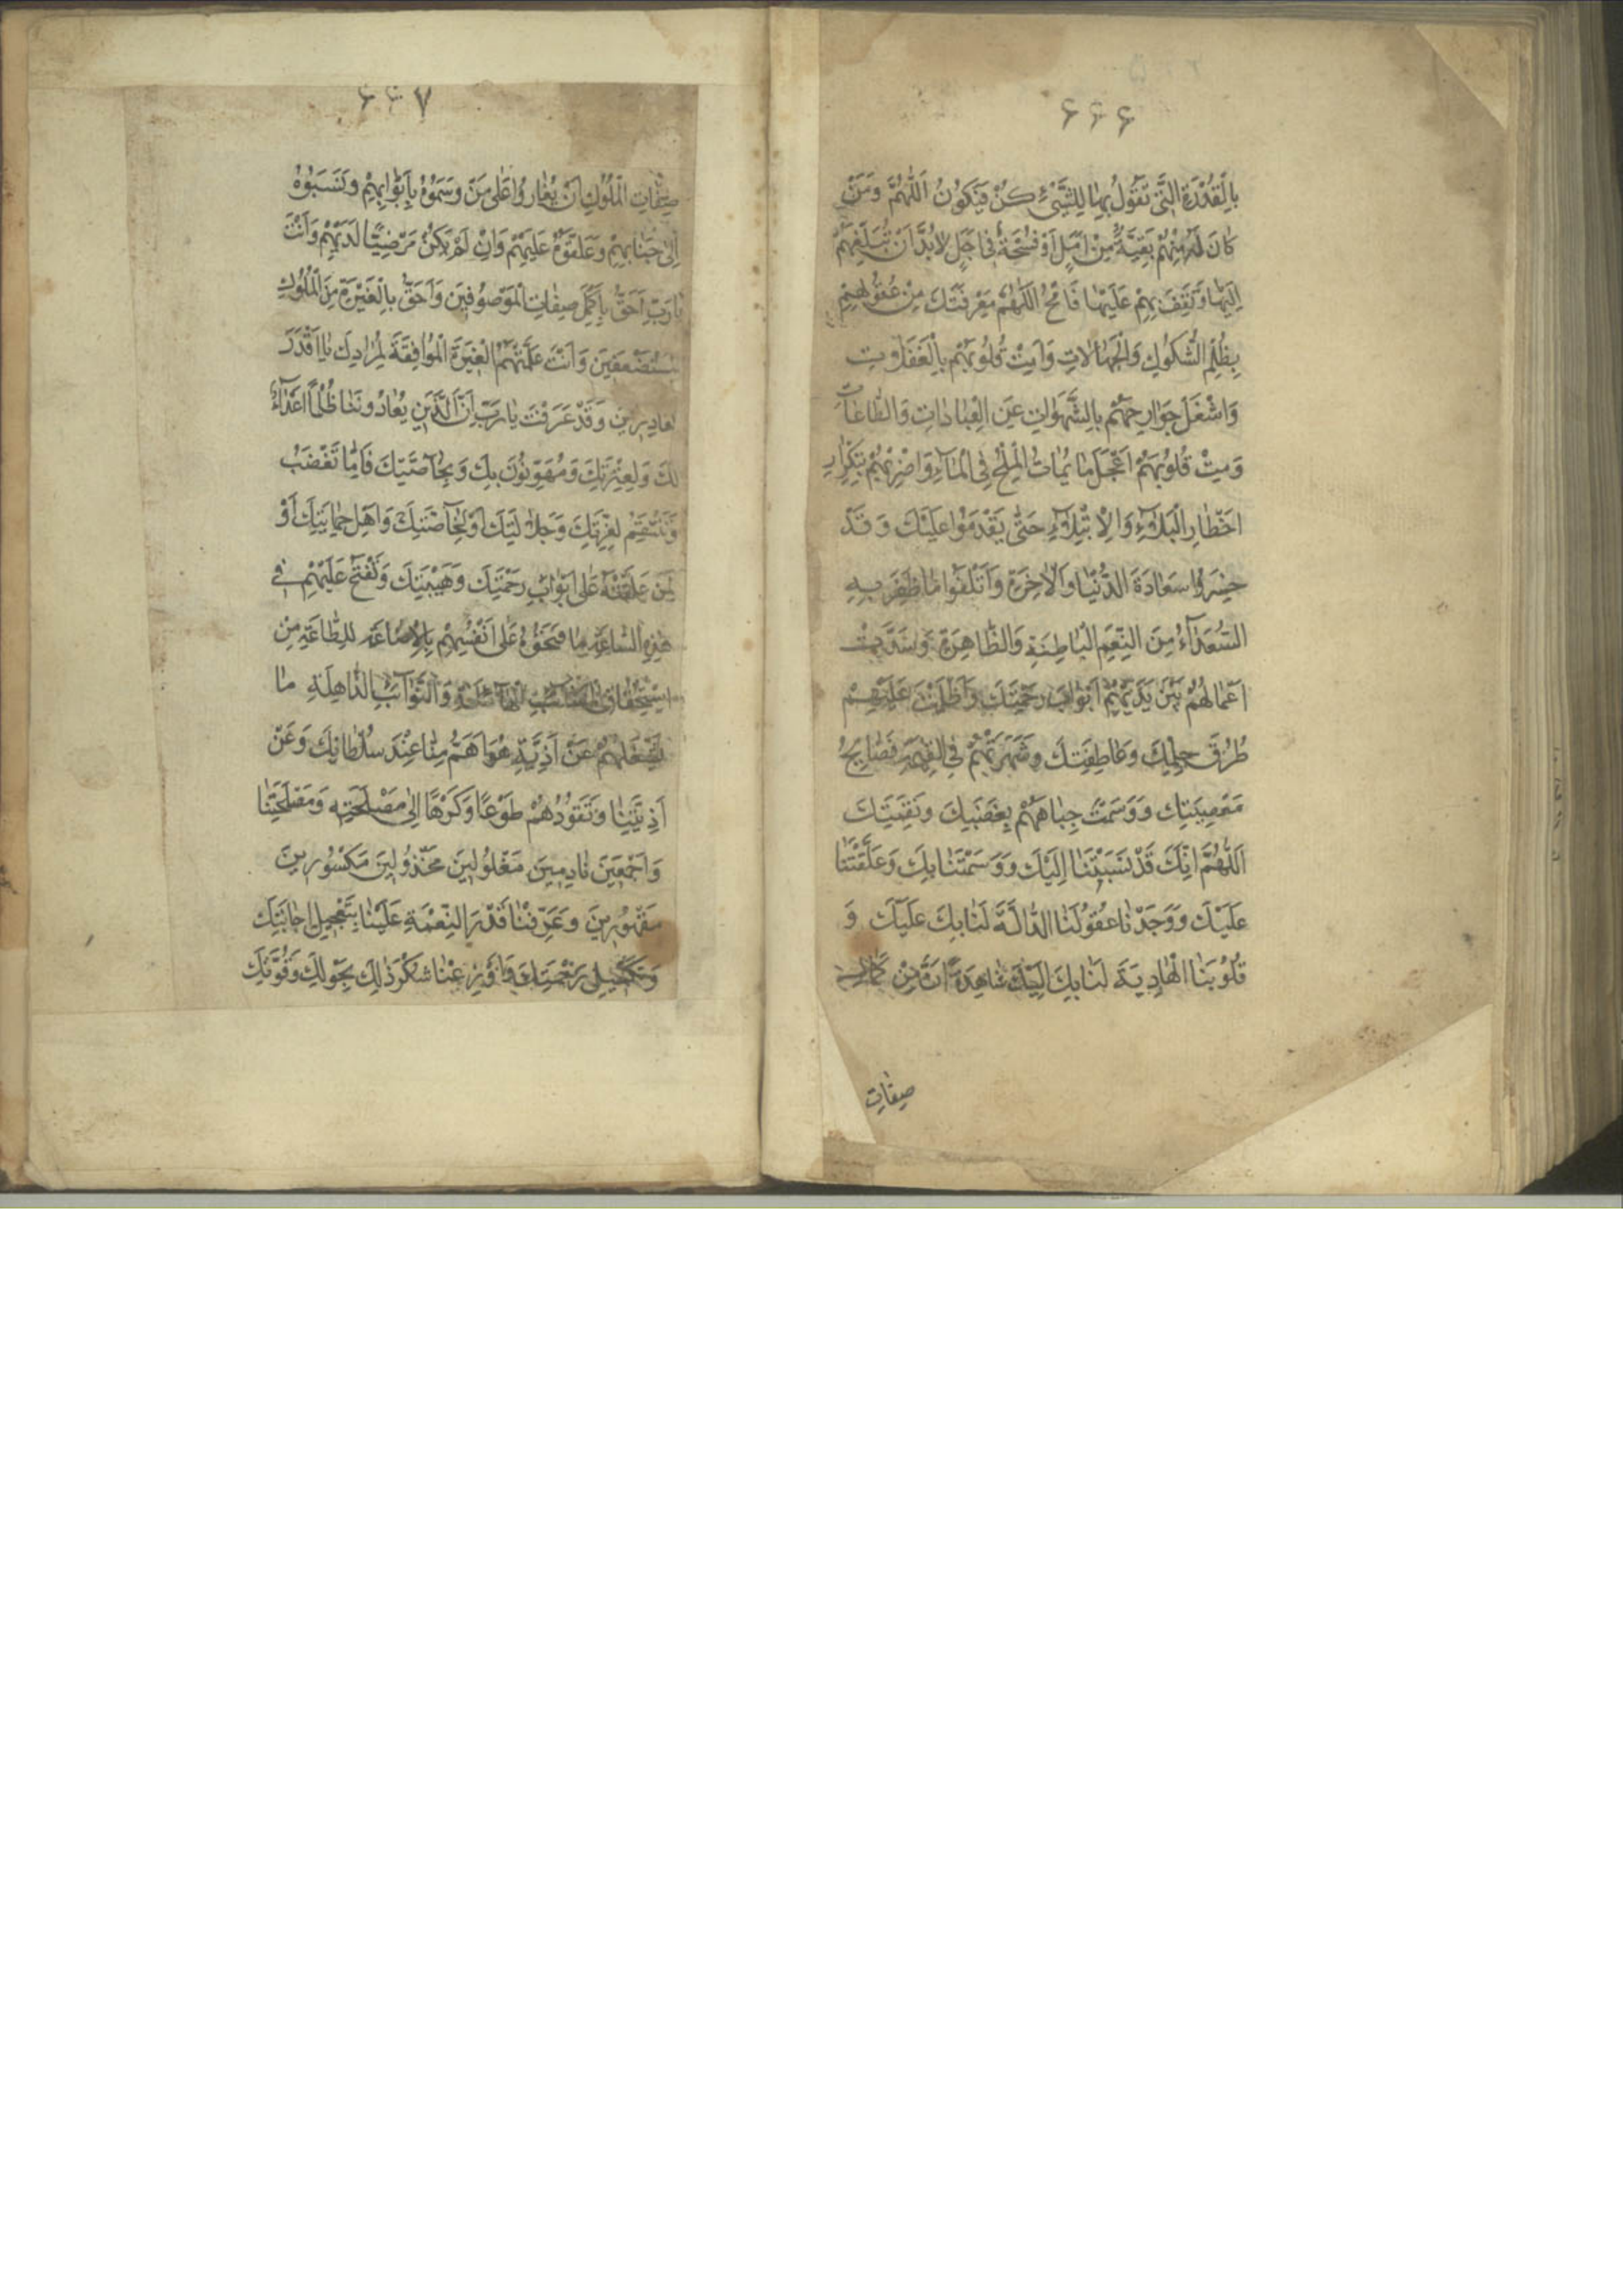 ۶۶۶
بِالْقُدْرَةِ الَّتی تَقُولُ بِهٰا لِلشَّیْءِ کُنْ فَیَکُونُ اَللّٰهُمَّ وَمَنْ
کٰانَ لَهُ مِنْهُمْ بَقِیَّةٌ مِنْ اَمَلٍ اَوْ فُسْحَةٌ فی اَجَلٍ لاٰ بُدَّ اَنْ تُبَلِّغَهُمْ
اِلَیْهٰا وَتَقِفَ بِهِمْ عَلَیْهٰا فَامْحُ اَللّٰهُمَّ مَعْرِفَتَکَ مِنْ عُقُولِهِمْ
بِظُلَمِ الشُّکُوکِ وَالْجَهٰالاٰتِ وَاَمِتْ قُلُوبَهُمْ بِالْغَفَلاٰتِ
وَاشْغَلْ جَوٰارِحَهُمْ بِالشَّهَوٰاتِ عَنِ الْعِبٰادٰاتِ وَالطّٰاعٰاتِ
وَمِثْ قُلُوبَهُمْ اَعْجَلَ مٰا یُمٰاثُ الْمِلْحُ فِی الْمٰآءِ وَاضْرِبْهُمْ بِتَکْرٰارِ
اَخْطٰارِ الْبَلاٰءِ وَالْاِبْتِلاٰءِ حَتّٰی یَقْدَمُوا عَلَیْکَ وَقَدْ
خَسِرُوا سَعٰادَةَ الدُّنْیٰا وَالْاٰخِرَةِ وَاَتْلَفُوا مٰا ظَفِرَ بِهِ
السُّعَدٰآءُ مِنَ النِّعَمِ الْبٰاطِنَةِ وَالظّٰاهِرَةِ وَسَدَّتْ
اَعْمٰالُهُمْ بَیْنَ یَدَیْهِمْ اَبْوٰابَ رَحْمَتِکَ وَاَظْلَمَتْ عَلَیْهِمْ
طُرُقَ حِلْمِکَ وَعٰاطِفَتِکَ وَشَهَرَتْهُمْ فِی الْقِیٰمَةِ فَضٰایِحُ
مَعْصِیَتِکَ وَوَسَمَتْ جِبٰاهَهُمْ بِغَضَبِکَ وَنَقِمَتِکَ
اَللّٰهُمَّ اِنَّکَ قَدْ نَسَبْتَنٰا اِلَیْکَ وَوَسَمْتَنٰا بِکَ وَعَلَّقْتَنٰا
عَلَیْکَ وَوَجَدْنٰا عُقُولَنَا الدّٰالَّةَ لَنٰا بِکَ عَلَیْکَ وَ
قُلُوبَنَا الْهٰادِیَةَ لَنٰا بِکَ اِلَیْکَ شٰاهِدَةً اَنَّ مِنْ کَمٰالِ
صِفٰاتِ
۶۶۷
صِفٰاتِ الْمُلُوکِ اَنْ یُغٰارُوا عَلٰی مَنْ وَسَمُوهُ بِاَبْوٰابِهِمْ وَنَسَبُوهُ
اِلٰی جَنٰابِهِمْ وَعَلَّقُوهُ عَلَیْهِمْ وَاِنْ لَمْ یَکُنْ مَرْضِیًّا لَدَیْهِمْ وَاَنْتَ
یٰا رَبِّ اَحَقُّ بِاَکْمَلِ صِفٰاتِ الْمَوْصُوفینَ وَاَحَقُّ بِالْغَیْرَةِ مِنَ الْمُلُوکِ
وَاَنْتَ عَلَّمْتَهُمُ الْغَیْرَةَ الْمُوٰافِقَةَ لِمُرٰادِکَ یٰا اَقْدَرَ
وَقَدْ عَرَفْتَ یٰا رَبِّ اَنَّ الَّذینَ یُعٰادُونَنٰا ظُلْمًا اَعْدٰآءٌ
لَکَ وَلِعِزَّتِکَ وَمُهَوِّنُونَ بِکَ وَبِخٰآصَّتِکَ فَاِمّٰا تَغْضَبُ
وَتَنْتَقِمُ لِعِزَّتِکَ وَجَلاٰلَتِکَ اَوْ لِخٰآصَّتِکَ وَاَهْلِ حِمٰایَتِکَ اَوْ
لِمَنْ عَلَّقْتَهُ عَلٰی اَبْوٰابِ رَحْمَتِکَ وَهَیْبَتِکَ وَتَفْتَحُ عَلَیْهِمْ فی
هٰذِهِ السّٰاعَةِ مٰا فَتَحُوهُ عَلٰی اَنْفُسِهِمْ بِالْاِضٰاعَةِ لِلطّٰاعَةِ مِنْ
اسْتِحْقٰاقِ الْمَصٰآئِبِ الْهٰآئِلَةِ وَالنَّوٰآئِبِ الذّٰاهِلَةِ مٰا
یَشْغَلُهُمْ عَنْ اَذِیَّةِ هُوَ اَهَمُّ مِنّٰا عِنْدَ سُلْطٰانِکَ وَعَنْ
اَذِیَّتِنٰا وَتَقُودُهُمْ طَوْعًا وَکَرْهًا اِلٰی مَصْلَحَتِهِ وَمَصْلَحَتِنٰا
وَاَجْمَعینَ نٰادِمینَ مَغْلُولینَ مَخْذُولینَ مَکْسُورینَ
مَقْهُورینَ وَعَرِّفْنٰا قَدْرَ النِّعْمَةِ عَلَیْنٰا بِتَعْجیلِ اِجٰابَتِکَ
وَتَکْمیلِ رَحْمَتِکَ وَاَوْزِعْنٰا شُکْرَ ذٰلِکَ بِحَوْلِکَ وَقُوَّتِکَ